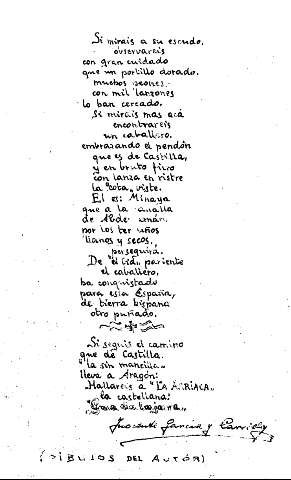 Si mirais a su escudo,
observareis
con gran cuidado
que un portillo dorado,
muchos peones
con mil lanzones
lo han cercado.
Si mirais mas acá
encontrareis
un caballero.
embrazando el pendón
que es de Castilla,
y en bruto fiero
con lanza en ristre
la "cota" viste.
El es: Minaya
que a la canalla
de Abde
por los
llanos y secos,
perseguira.
De "el Cid" pariente
el caballero,
ha conquistado
para esta España,
de tierra hispana
otro puñado.
Si seguis el camino
que de Castilla.
"la sin mancilla"
lleva a Aragón:
Hallareis a "LA ARRIACA"
la castellana:
Inocente García y Carrión
(DIBUJOS DEL AUTOR)